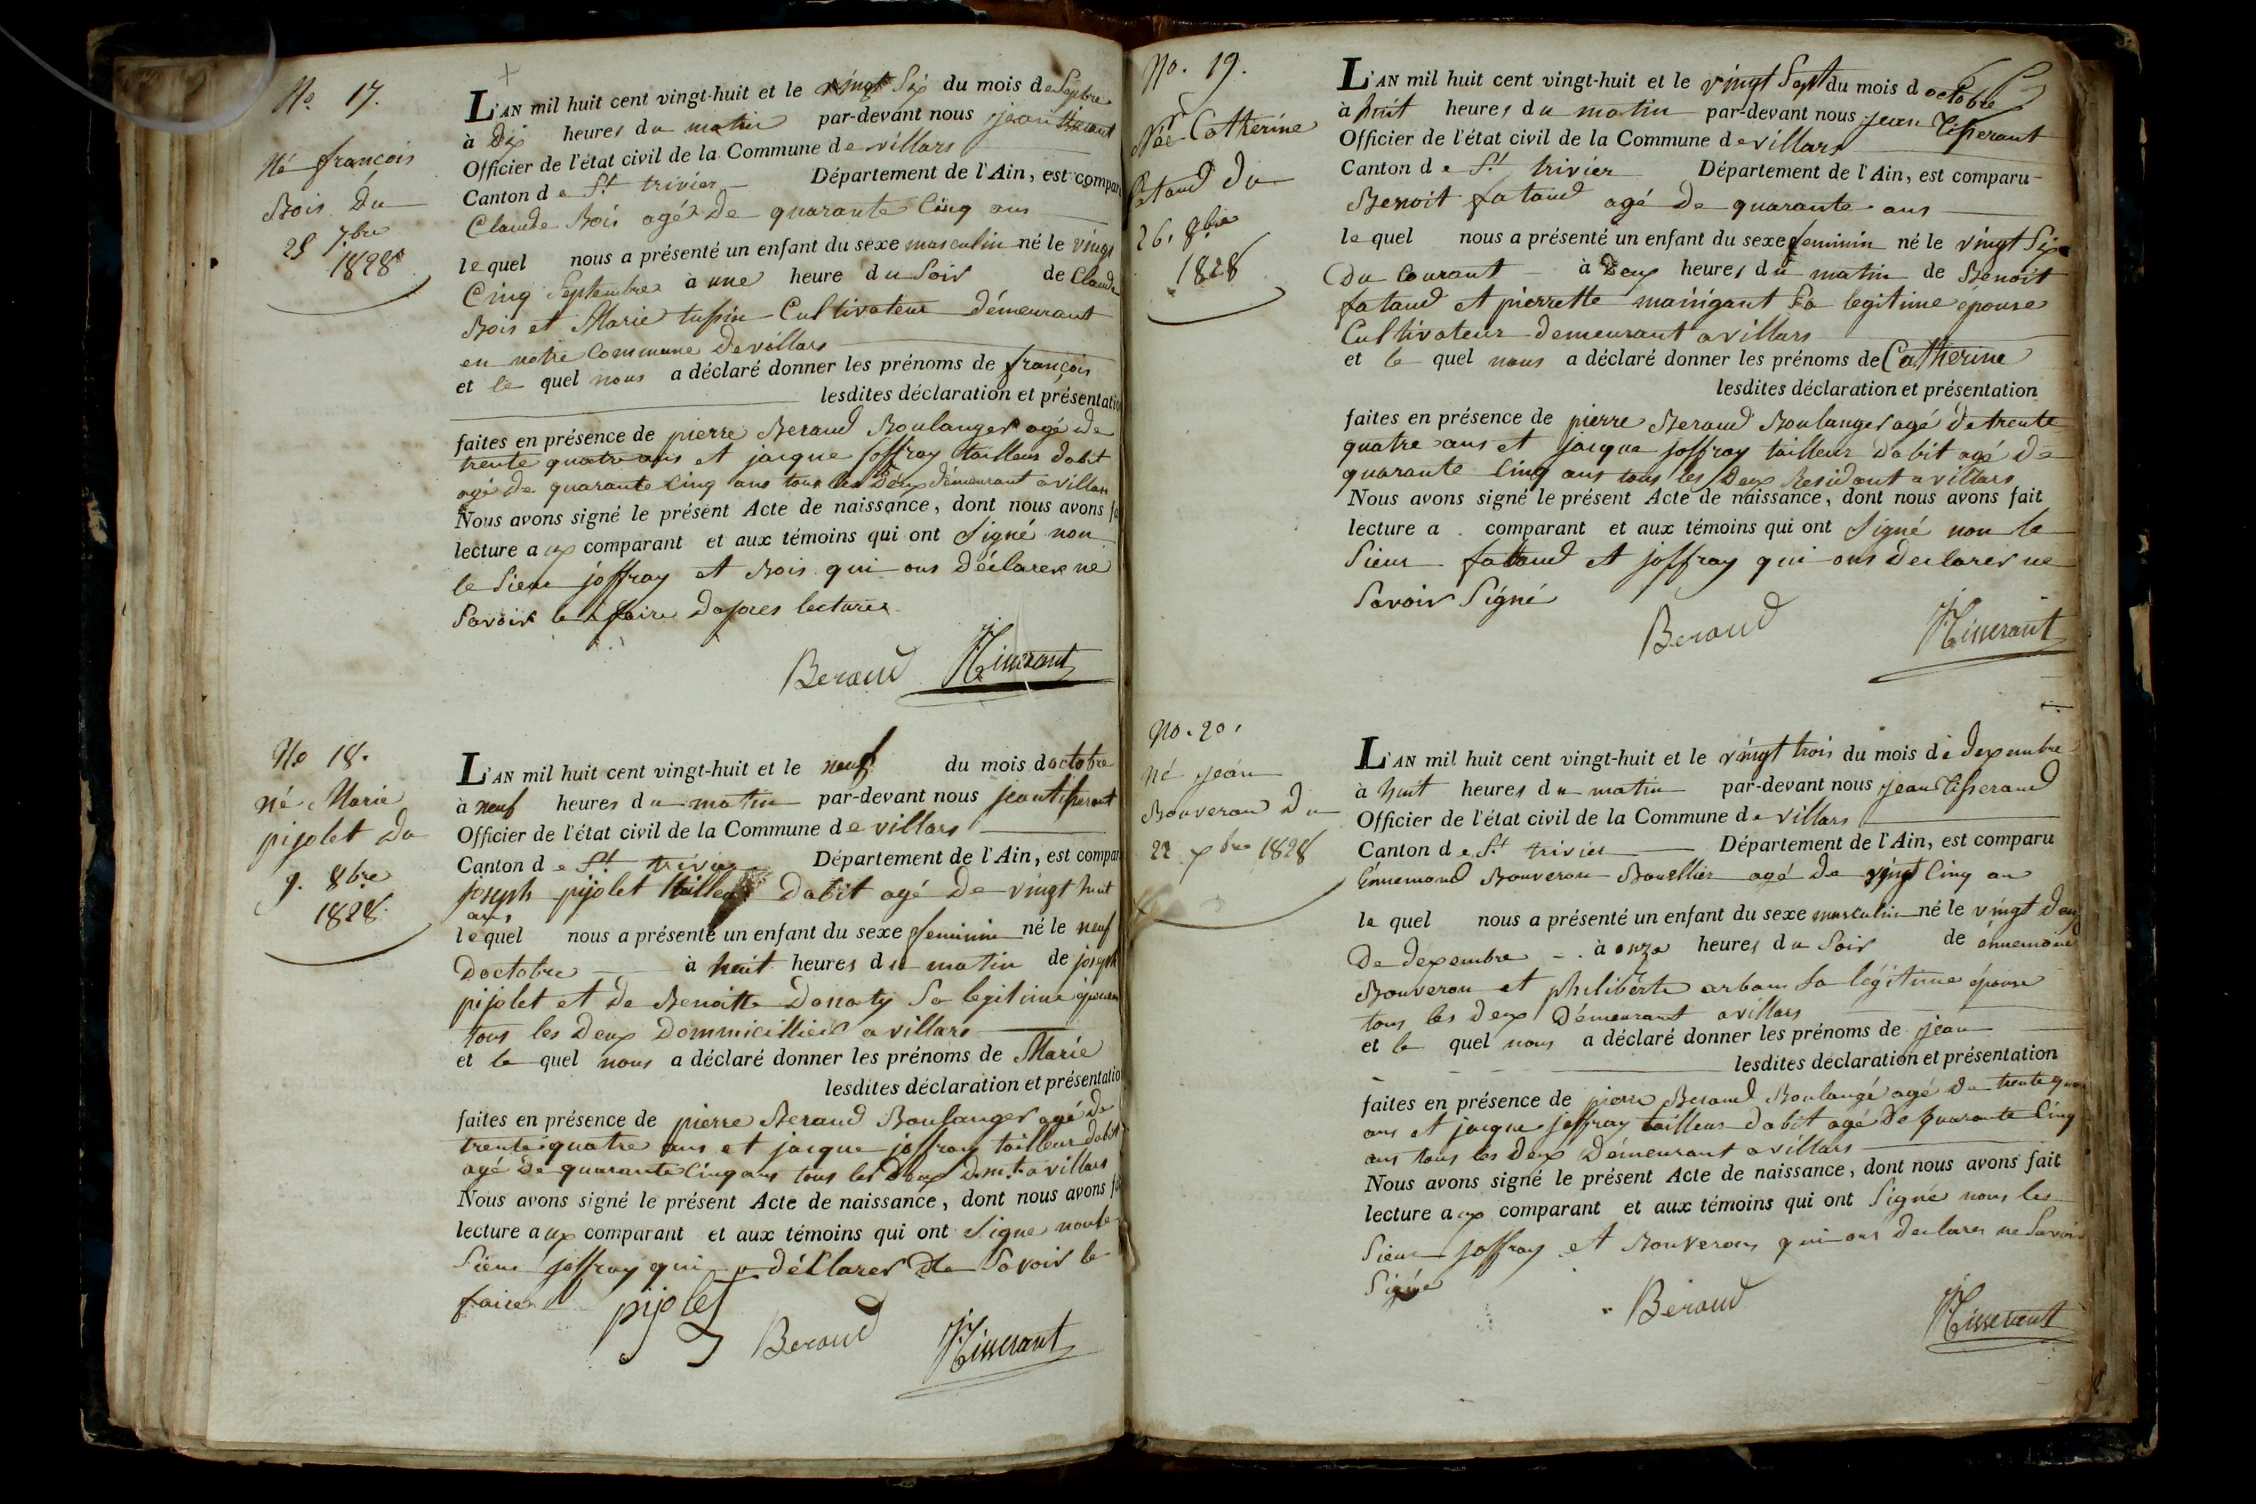 No. 17.
Né françois
Bois Du
25 7bre
1828
L'AN mil huit cent vingt-huit et le vingt Six du mois de Sepbre
à Dix heures du matin par-devant nous jean tisserant
Officier de l'état civil de la Commune de villars
Canton de St. trivier Département de l'Ain, est compar
Claude Bois agé De quarante Cinq ans
lequel nous a présenté un enfant du sexe masculin né le vingt
Cinq Septembre à une heure du Soir de Claude
Bois et Marie tussin Cultivateur Démeurant
en notre Commune De villars
et le quel nous a déclaré donner les prénoms de françois
lesdites déclaration et présentatio
faites en présence de pierre Beraud Boulanger agé de
trente quatre ans et jacque joffray tailleur dabit
agé De quarante Cinq ans tous les Deux démeurant a villars
Nous avons signé le présent Acte de naissance, dont nous avons fa
lecture aux comparant et aux témoins qui ont Signé non
le Sieur joffray et Bois qui ons Déclarer ne
Savoir le faire Dapres lecture
Beraud JTisserant
No 18.
né Marie
pijolet Du
9. 8bre
1828
L'AN mil huit cent vingt-huit et le neuf du mois doctobre
à neuf heures du matin par-devant nous jean tisserant
Officier de l'état civil de la Commune de villars
Canton de St. trivier Département de l'Ain, est compar
joseph pijolet tailleur Dabit agé De vingt huit
ans
lequel nous a présenté un enfant du sexe feminin né le neuf
Doctobre à huit heures du matin de joseph
pijolet et De Benoitte Donaty Sa legitime epouse
tous les Deux Dommicilliés a villars
et le quel nous a déclaré donner les prénoms de Marie
lesdites déclaration et présentatio
faites en présence de pierre Beraud Boulanger agé de
trente quatre ans et jacque joffray tailleur dabit
agé De quarante Cinq ans tous les Deux Dmt. a villars
Nous avons signé le présent Acte de naissance, dont nous avons fa
lecture aux comparant et aux témoins qui ont Signe non le
Sieur joffray qui a déclarer Ne Savoir le
faire
pijolet
Beraud JTisserant
No. 19.
Née Catherine
fataud du
26. 8bre
1828
L'AN mil huit cent vingt-huit et le vingt Sept du mois doctobre
à huit heures du matin par-devant nous jean Tisserant
Officier de l'état civil de la Commune de villars
Canton de St. trivier Département de l'Ain, est comparu
Benoit fataud agé De quarante ans
le quel nous a présenté un enfant du sexe feminin né le vingt Six
Du Courant à Deux heures du matin de Benoit
fataud et pierrette mainigant Sa legitime épouse
Cultivateur demeurant a villars
et le quel nous a déclaré donner les prénoms de Catherine
lesdites déclaration et présentation
faites en présence de pierre Beraud Boulanger agé de trente
quatre ans et jacque joffray tailleur Dabit agé De
quarante Cinq ans tous les Deux Residant a villars
Nous avons signé le présent Acte de naissance, dont nous avons fait
lecture a comparant et aux témoins qui ont Signé non le
Sieur fataud et joffray qui ons Declarer ne
Savoir Signé
Beraud JTisserant
No. 20.
né jean
Bouveron Du
22 xbre 1828
L'AN mil huit cent vingt-huit et le vingt trois du mois de dexembre
à huit heures du matin par-devant nous jean Tisserand
Officier de l'état civil de la Commune de villars
Canton de St trivier Département de l'Ain, est comparu
Ennemond Bouveron Bourllier agé De vingt Cinq an
le quel nous a présenté un enfant du sexe masculin né le vingt Deux
De dexembre à onze heures du Soir de énnemond
Bouveron et philiberte arban Sa légitime épouse
tous les Deux Démeurant a villars
et le quel nous a déclaré donner les prénoms de jean
lesdites déclaration et présentation
faites en présence de pierre Beraud Boulangé agé De trente quatre
ans et jacque joffray tailleur dabit agé De quarante Cinq
ans tous les Deux Démeurant a villars
Nous avons signé le présent Acte de naissance, dont nous avons fait
lecture aux comparant et aux témoins qui ont Signé nons les
Sieur joffray et Bouveron qui ons declarer ne Savoir
Signé
Beraud
JTisserant